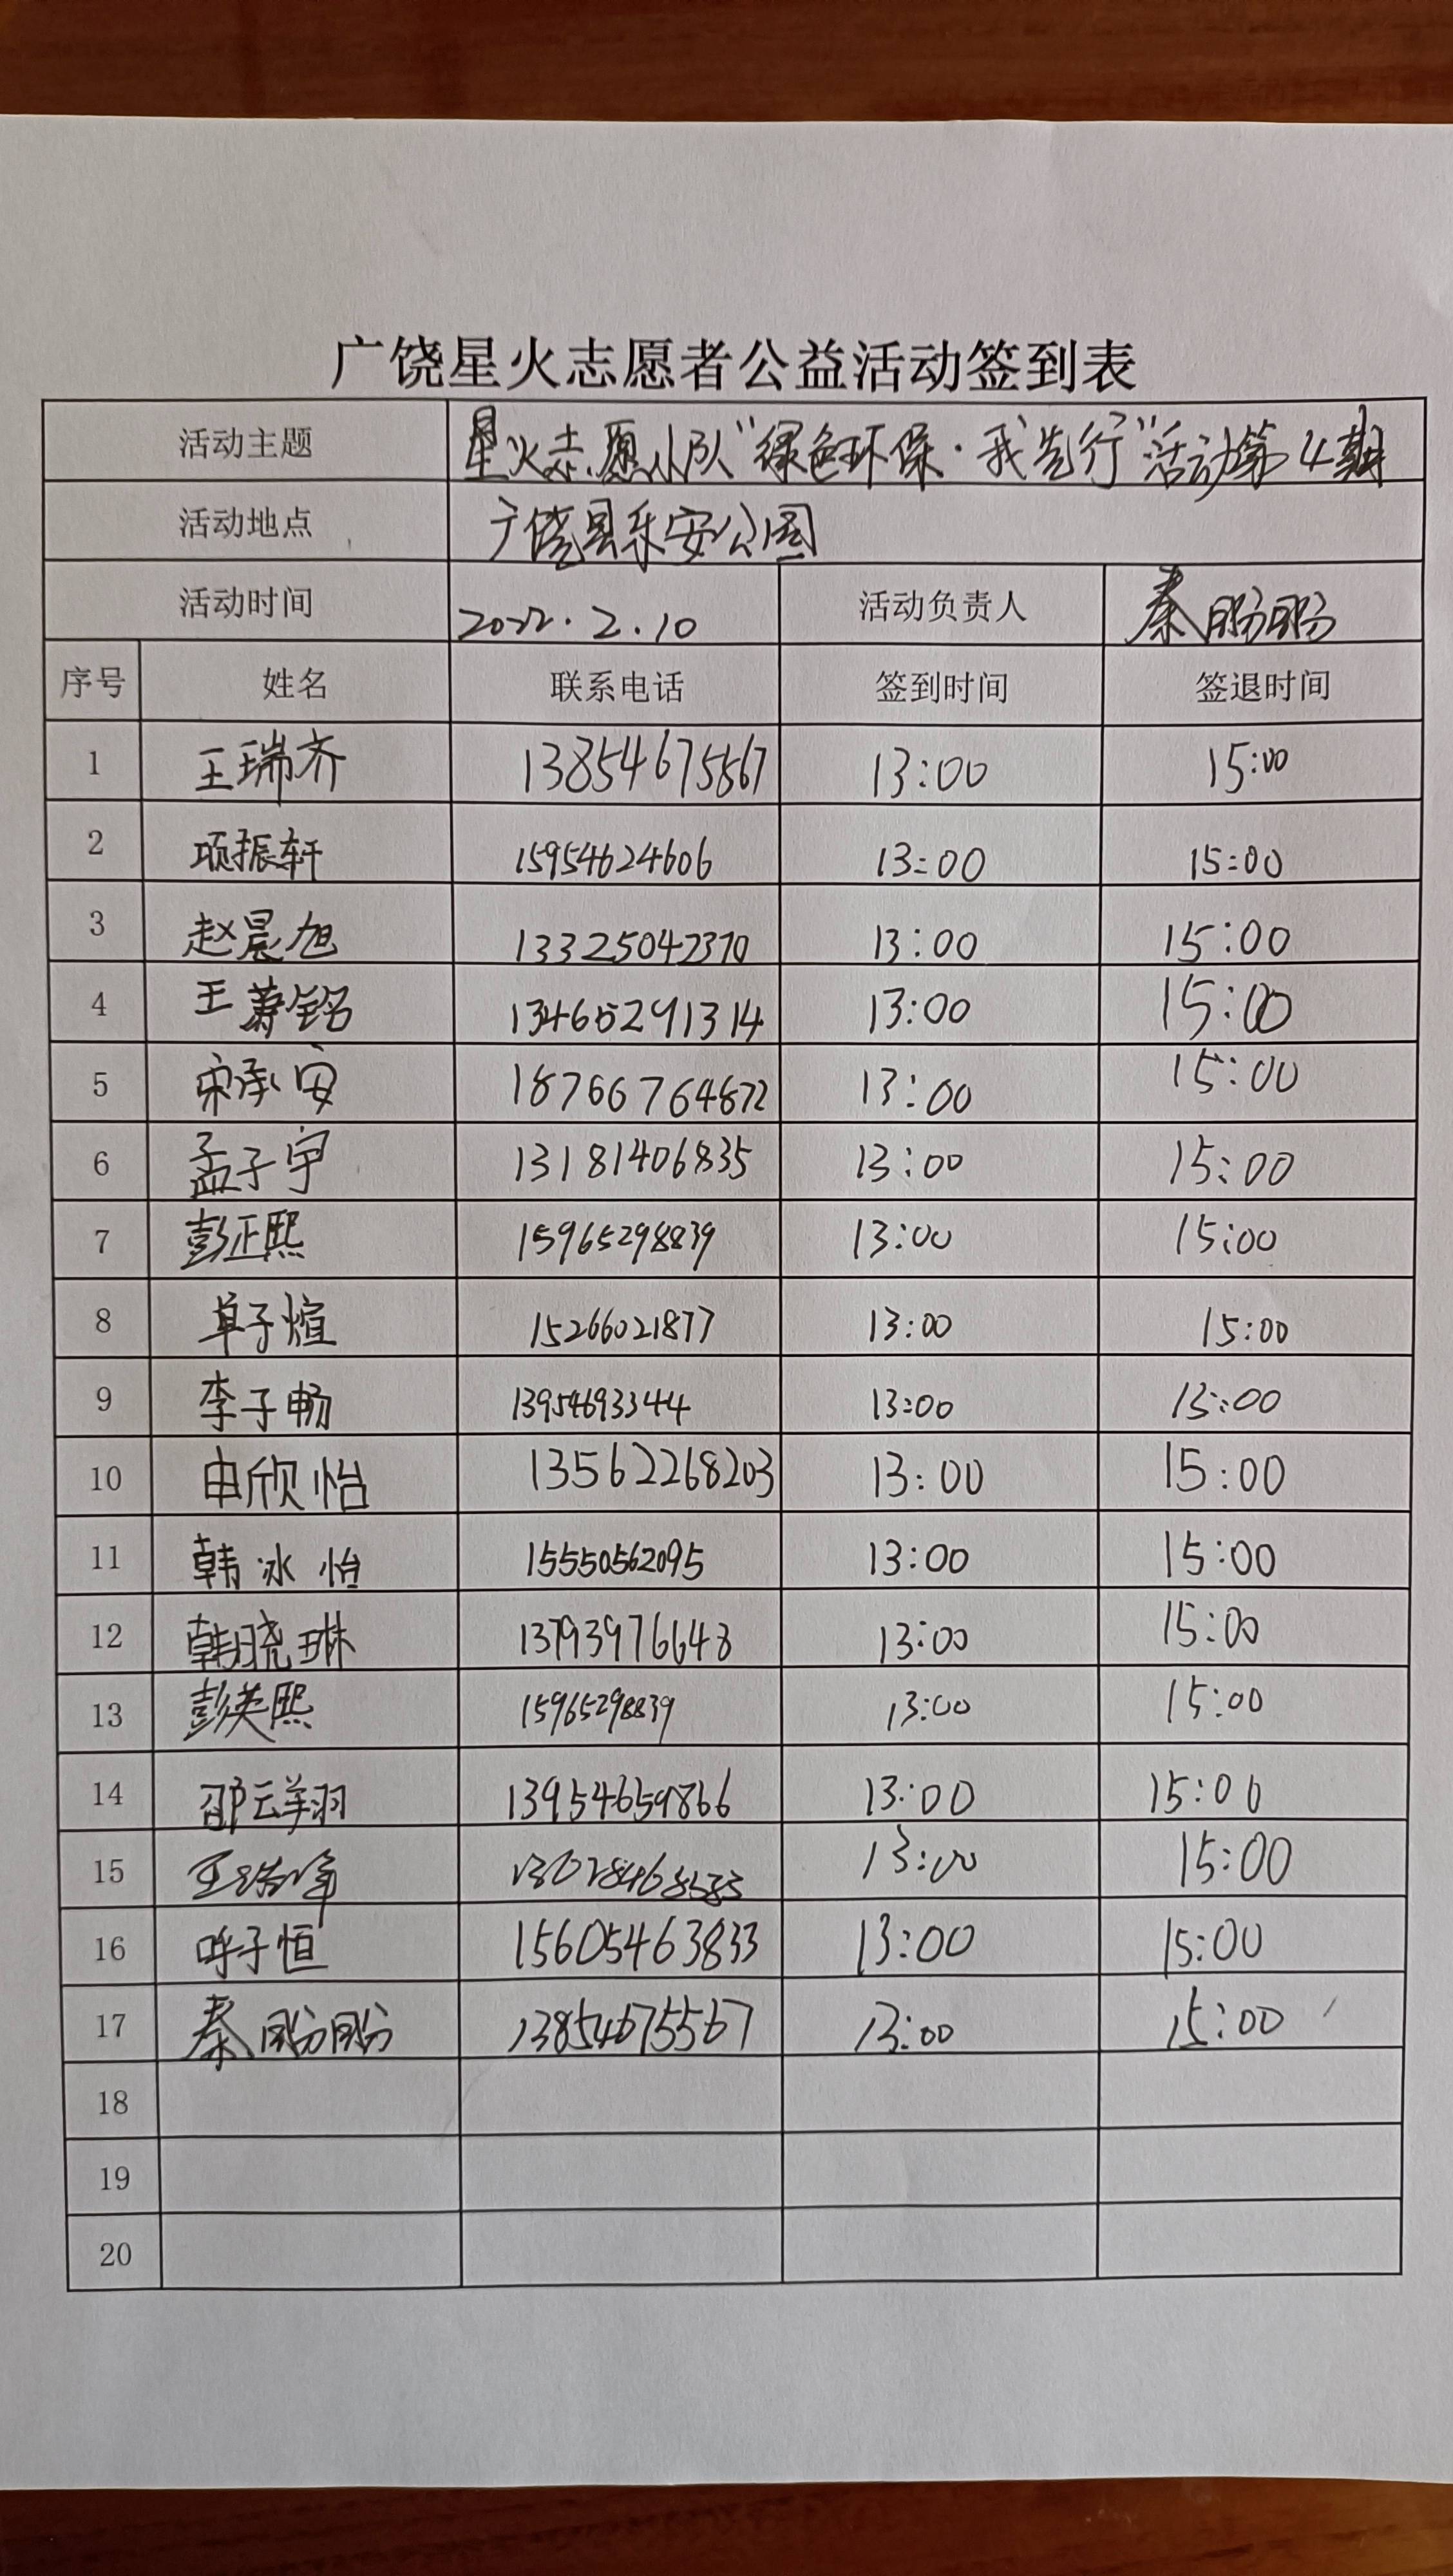 广饶星火志愿者公益活动签到表
活动主题 星火志愿小队“绿色环保·我先行”活动第4期
活动地点 广饶县乐安公园
活动时间 2022.2.10 活动负责人 秦盼盼
序号 姓名 联系电话 签到时间 签退时间
1 王瑞齐 13854675567 13:00 15:00
2 项振轩 15954624606 13:00 15:00
3 赵晨旭 13325042370 13:00 15:00
4 王蔚铭 13465291314 13:00 15:00
5 宋承安 18766764872 13:00 15:00
6 孟子宇 13181406835 13:00 15:00
7 彭正熙 15965298839 13:00 15:00
8 卓子煊 15266021877 13:00 15:00
9 李子畅 13954693344 13:00 15:00
10 申欣怡 13562268203 13:00 15:00
11 韩冰怡 15550562095 13:00 15:00
12 韩晓琳 13793976648 13:00 15:00
13 彭英熙 15965298839 13:00 15:00
14 邵云翔 13954659866 13:00 15:00
15 13:00 15:00
16 呼子恒 15605463833 13:00 15:00
17 秦盼盼 13854675567 13:00 15:00
18
19
20